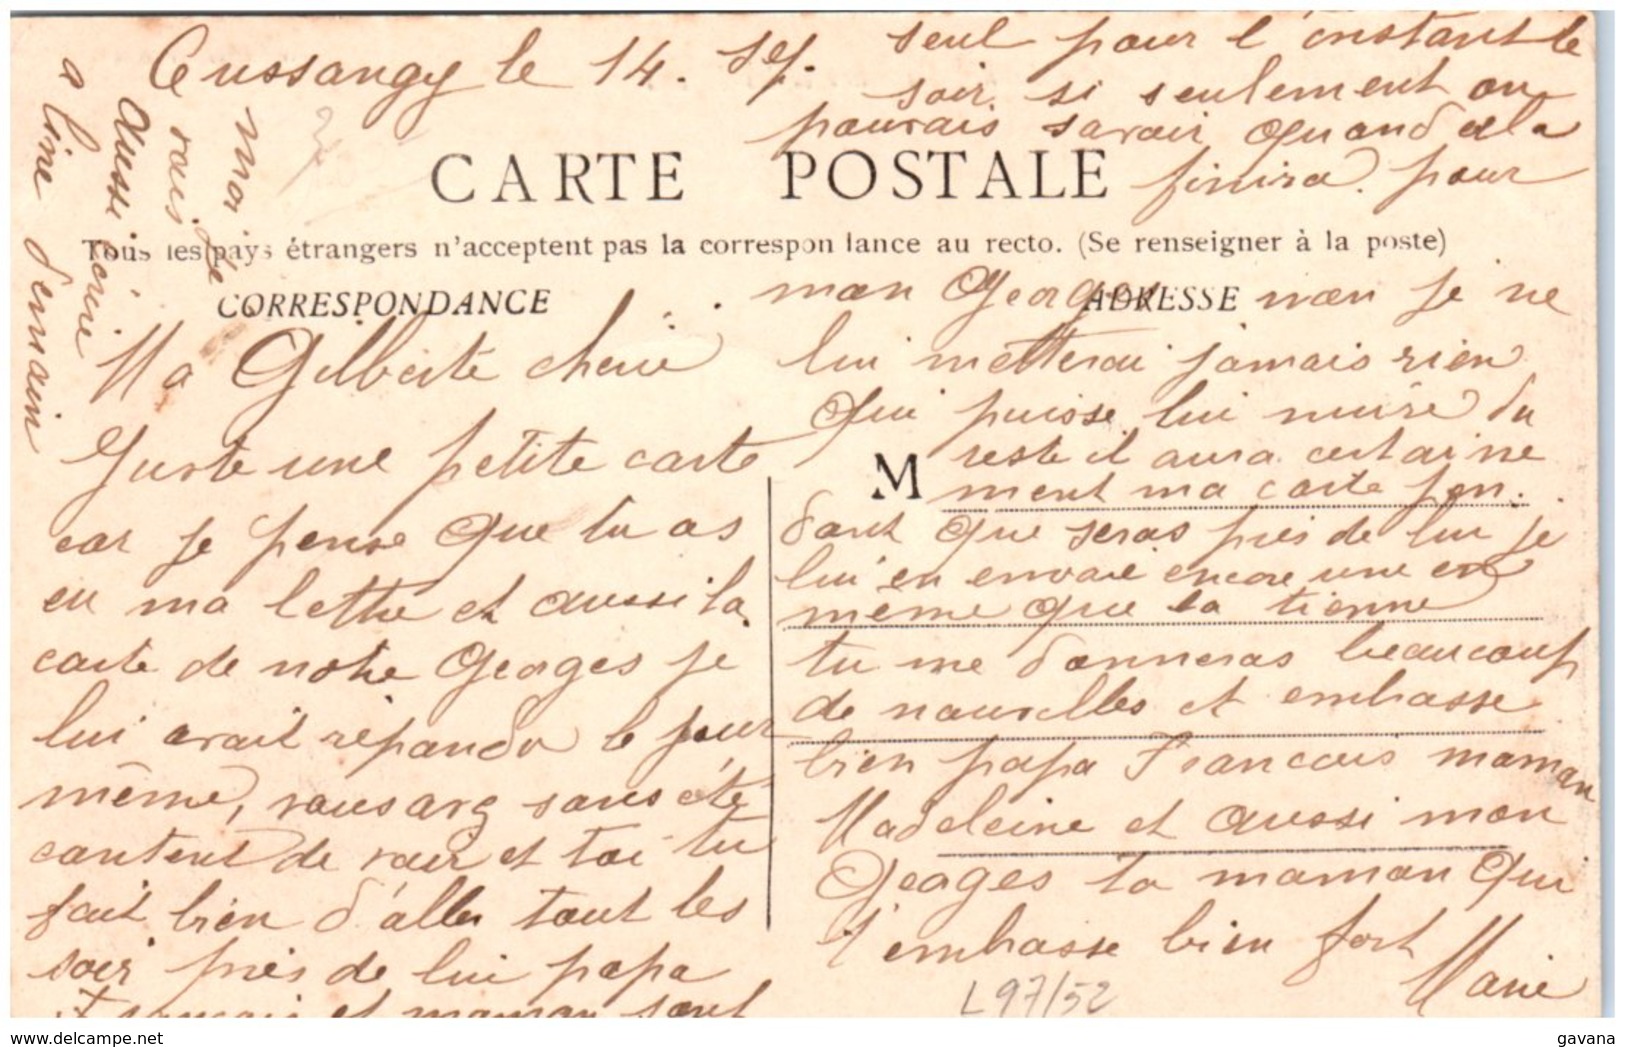 Cussangy le 14. Sep.
CARTE POSTALE
Tous les pays étrangers n'acceptent pas la correspondance au recto. (Se renseigner à la poste)
CORRESPONDANCE
ADRESSE
M
Ma Gilberte cherie
Juste une petite carte
car je pense que tu as
eu ma lettre et aussi la
carte de notre Georges je
lui avait répondu le jour
même, vous avez sans été
content de voir et toi tu
fait bien d'aller tout les
soir près de lui papa
Francois et maman sont
seul pour l'instant le
soir, si seulement on
pouvais savoir quand cela
finira. pour
mon Georges non je ne
lui metterai jamais rien
qui puisse lui nuire du
reste il aura certaine
ment ma carte pen.
dant que seras près de lui je
lui en envoie encore une en
même que la tienne
tu me donneras beaucoup
de nouvelles et embrasse
bien papa Francois maman
Madeleine et aussi mon
Georges ta maman qui
t'embrasse bien fort
Marie
moi je
vais
aussi écrire
a line demain
L97/52
delcampe.net
gavana